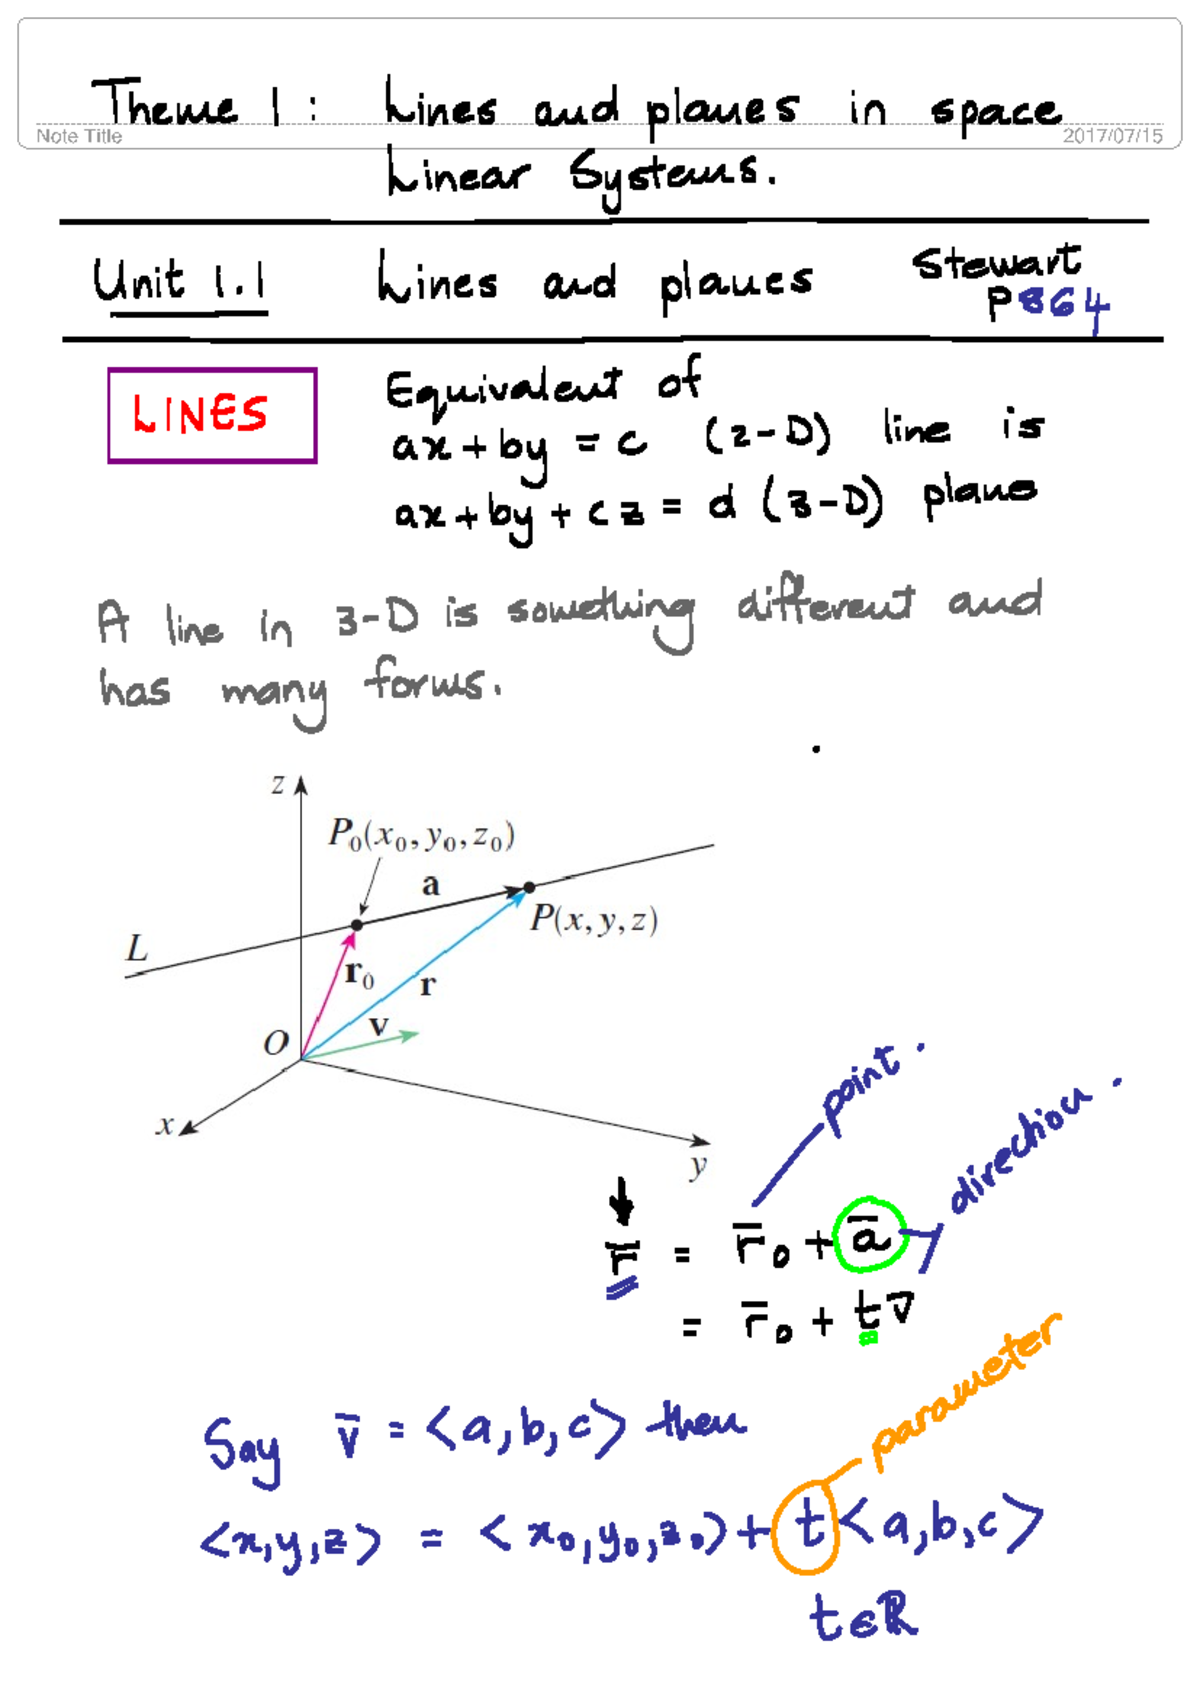 Theme 1 : Lines and planes in space
Note Title
2017/07/15
Linear Systems.
Unit 1.1 Lines and planes Stewart
P864
LINES
Equivalent of
ax + by = c (2-D) line is
ax + by + cz = d (3-D) plane
A line in 3-D is something different and
has many forms.
z
P₀(x₀, y₀, z₀)
a
P(x, y, z)
L
r₀
r
v
O
x
y
point.
direction.
r̄ = r̄₀ + ā
= r̄₀ + t v̄
parameter
Say v̄ = <a, b, c> then
<x, y, z> = <x₀, y₀, z₀> + t <a, b, c>
t ∈ ℝ